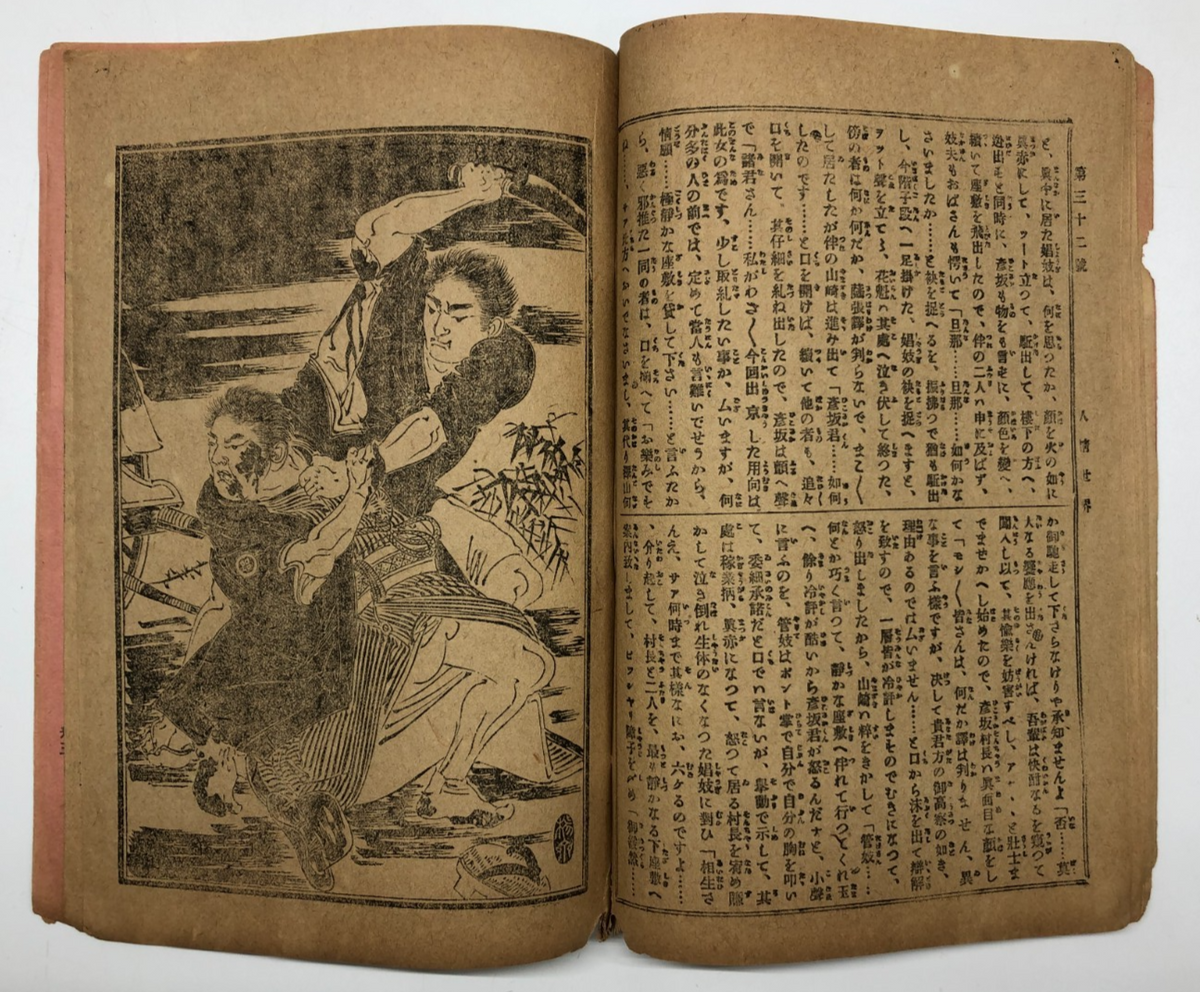 第三十二號
人情世界
と、眞中に居た娼妓は、何を思つたか、顏を火の如に
眞赤にして、ツート立つて、駈出して、樓下の方へ、
迯出すと同時に、彦坂も物をも言はに、顏色を變へ、
續いて座敷を飛出したので、伴の二人ハ申に及ばず、
妓夫もおばさんも愕いて「旦那……旦那……如何かな
さいましたか……と袂を捉へるを、振拂つて猶も駈出
し、今階子段へ一足掛けた、娼妓の袂を捉へますと、
ヲット聲を立てゝ、花魁ハ其處へ泣き伏して終つた、
傍の者は何が何だか、薩張譯が判らないで、まご〳〵
して居たしたが伴の山崎は進み出て「彦坂君……如何
したのです……と口を開けば、續いて他の者も、追々
口を開いて、其仔細を糺ね出したので、彦坂は顫へ聲
で「諸君さん……私がわざ〳〵今回出京した用向は、
此女の爲です、少し取糺したい事か、ムいますが、何
分多の人の前では、定めて當人も言難いでせうから、
情願……極靜かな座敷を貸して下さい……と言ふたか
ら、惡く邪推た一同の者は、口を揃へて「お樂みでを
か御馳走して下さらなけりや承知ませんよ「否……莫
大なる饗應を出さんければ、吾輩は快酣なるを寬つて
闖入し以て、其愉樂を妨害すべし、アハヽヽと壯士ま
でませかへし始めたので、彦坂村長ハ眞面目な顏をし
て「モシ〳〵皆さんは、何だか譯は判りません、異
な事を言ふ樣ですが、决して貴君方の御高察の如き、
理由あるのではムいません……と口から沫を出て辯解
を致すので、一層皆が冷評しまそのでむきになつて、
怒り出しましたから、山崎ハ粹をきかして「管妓……
何とか巧く言つて、靜かな座敷へ伴れて行つてくれ玉
へ、餘り冷評が酷いから彦坂君が怒るんだナと、小聲
に言ふのを、管妓はポント掌で自分で自分の胸を叩い
て、委細承諾だと口でハ言ないが、擧動で示して、其
處は稼業柄、眞赤になつて、怒つて居る村長を宥め賺
かして泣き倒れ生体のなくなつた娼妓に對ひ「相生さ
んえ、サア何時まで其樣なにお、六ケるのですよ……
、分り起して、村長と二人を、最ゝ靜かなる下座敷へ
案内致しまして、ピツシヤリ障子を〆め